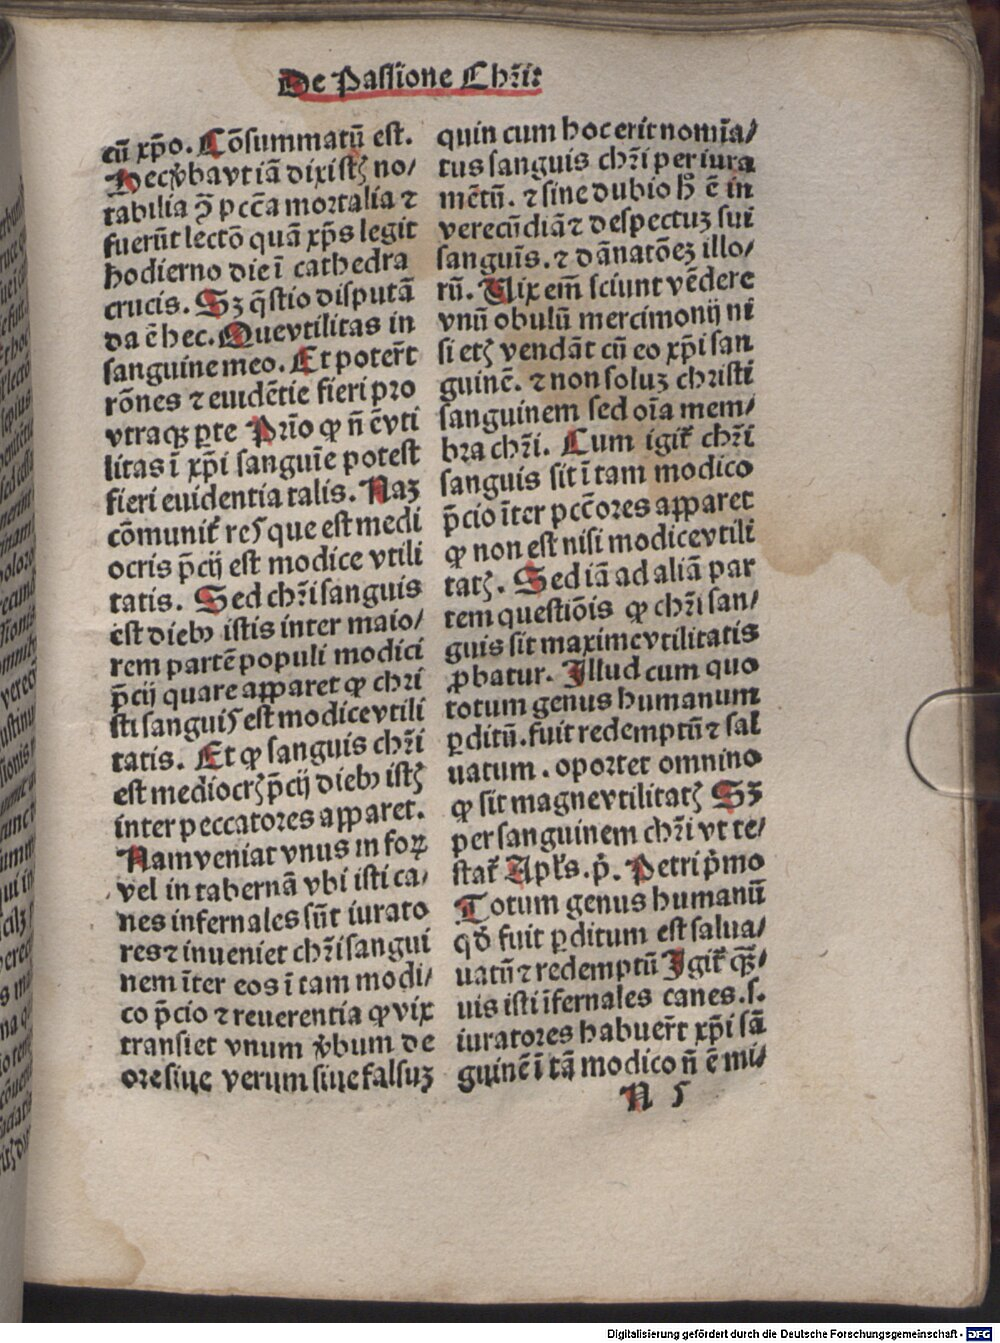 De Passione Chr̄i:
cū xp̄o. Cōsummatū est.
Hec v̾ba vt iā dixistꝭ no/
tabilia ꝯ̄ pcc̄a mortalia ⁊
fuerūt lectō quā xp̄s legit
hodierno die ī cathedra
crucis. Sꝫ q̄stio disputā
da ē hec. Que vtilitas in
sanguine meo. Et poter̄t
rōnes ⁊ euidētie fieri pro
vtraqꝫ ꝑte Prīo ꝙ n̄ ē vti
litas ī xp̄i sanguīe potest
fieri euidentia talis. Naꝫ
cōmunit̾ res que est medi
ocris p̄cij est modice vtili
tatis. Sed chr̄i sanguis
est dieb⁹ istis inter maio/
rem partē populi modici
p̄cij quare apparet ꝙ chri
sti sanguis est modice vtili
tatis. Et ꝙ sanguis chr̄i
est mediocrꝭ p̄cij dieb⁹ istꝭ
inter peccatores apparet.
Nam veniat vnus in foꝝ
vel in tabernā vbi isti ca/
nes infernales sūt iurato
res ⁊ inueniet chr̄i sangui
nem īter eos ī tam modi/
co p̄cio ⁊ reuerentia ꝙ vix
transiet vnum v̾bum de
ore siue verum siue falsuꝫ
quin cum hoc erit nomīa/
tus sanguis chr̄i per iura
mētū. ⁊ sine dubio h̄ ē in
verecūdiā ⁊ despectuꝫ sui
sanguīs. ⁊ dānatōeꝫ illo/
rū. Uix em̄ sciunt vēdere
vnū obulū mercimonij ni
si etꝭ vendāt cū eo xp̄i san
guinē. ⁊ non soluꝫ christi
sanguinem sed oīa mem/
bra chr̄i. Cum igit̾ chr̄i
sanguis sit ī tam modico
p̄cio īter pcc̄ores apparet
ꝙ non est nisi modice vtili
tatꝭ. Sed iā ad aliā par
tem questiōis ꝙ chr̄i san/
guis sit maxime vtilitatis
ꝓbatur. Illud cum quo
totum genus humanum
ꝑditū. fuit redemptū ⁊ sal
uatum. oportet omnino
ꝙ sit magne vtilitatꝭ Sꝫ
per sanguinem chr̄i vt te/
stat̾ Apl̄s. p̄. Petri p̄mo
Totum genus humanū
qd̾ fuit ꝑditum est salua/
uatū ⁊ redemptū Igit̾ qꝫ̄/
uis isti īfernales canes .s.
iuratores habuer̄t xp̄i sā
guinē ī tā modico n̄ ē mi/
N 5
Digitalisierung gefördert durch die Deutsche Forschungsgemeinschaft - DFG